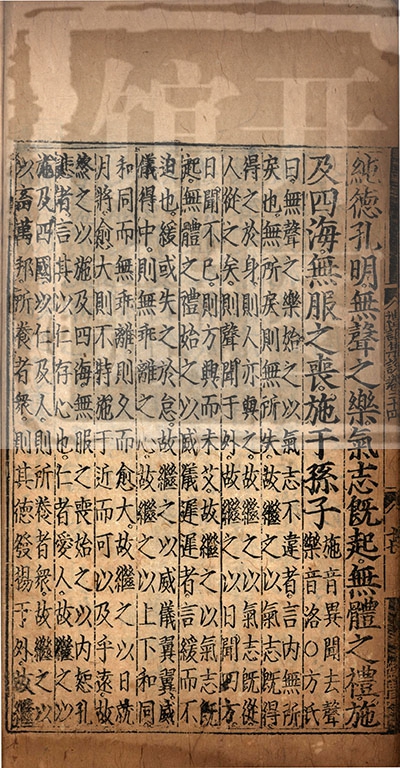 純德孔明無聲之樂氣志既起無體之禮施
及四海無服之喪施于孫子
施音異聞去聲
樂音洛○方氏
曰無聲之樂始之以氣志不違者言內無所
戾也無所戾則無所失故繼之以氣志既得
得之於身則人亦與之故繼之以氣志既從
人從之矣則聲聞于外故繼之以日聞四方
日聞不已則方興而未艾故繼之以氣志既
起無體之禮始之以威儀遲遲者言緩而不
迫也緩或失之於怠故繼之以威儀翼翼威
儀得中則無乖離之心故繼之以上下和同
和同而無乖離則久而愈大故繼之以日就
月將愈大則不特施於近而可以及乎遠故
終之以施及四海無服之喪始之以內恕孔
悲者言其以仁存心也仁者愛人故繼之以
施及四國以仁及人則所養者衆故繼之以
以畜萬邦所養者衆則其德發揚于外故繼